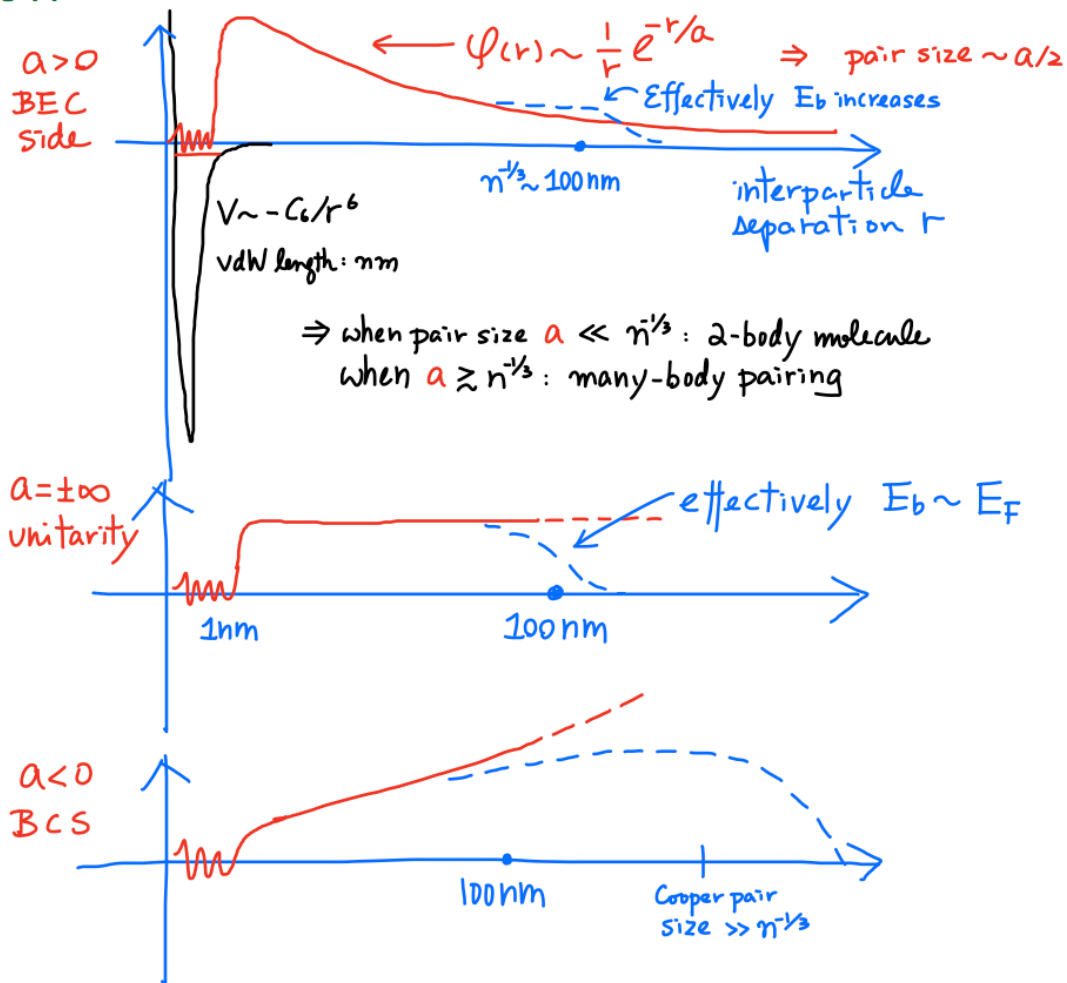 a>0
BEC
side
← φ(r) ~ 1/r e^{-r/a} ⇒ pair size ~ a/2
Effectively Eb increases
n^{-1/3} ~ 100 nm
interparticle
separation r
V ~ -C₆/r⁶
vdW length: nm
⇒ when pair size a ≪ n^{-1/3} : 2-body molecule
when a ≳ n^{-1/3} : many-body pairing
a=±∞
unitarity
effectively Eb ~ E_F
1nm
100nm
a<0
BCS
100nm
Cooper pair
size ≫ n^{-1/3}